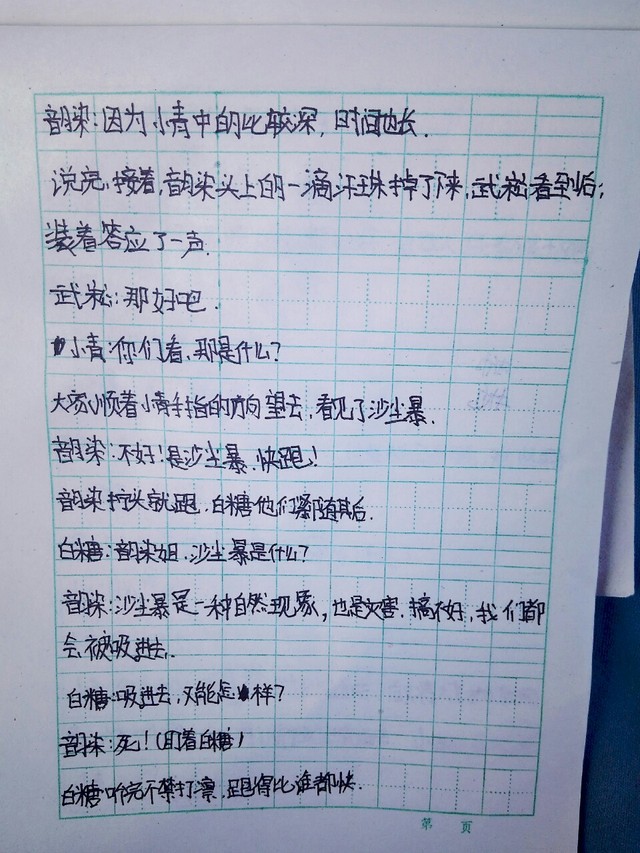 韵染:因为小青中的比较深,时间也长.
说完,接着,韵染头上的一滴汗珠掉了下来,武崧看到后;
装着答应了一声.
武崧:那好吧.
小青:你们看,那是什么?
大家顺着小青手指的方向望去,看见了沙尘暴.
韵染:不好!是沙尘暴.快跑!
韵染拧头就跑,白糖他们紧随其后.
白糖:韵染姐,沙尘暴是什么?
韵染:沙尘暴是一种自然现象,也是灾害.搞不好,我们都
会被吸进去.
白糖:吸进去,又能怎样?
韵染:死!(盯着白糖)
白糖听完不禁打凛,跑得比谁都快.
第 页